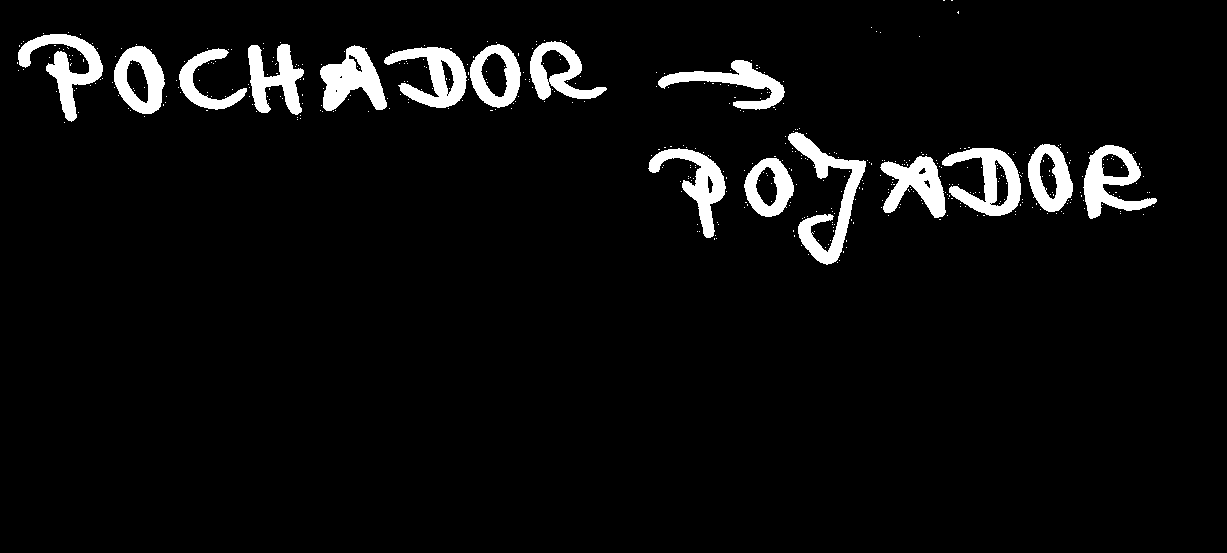 POCHADOR →
POJADOR